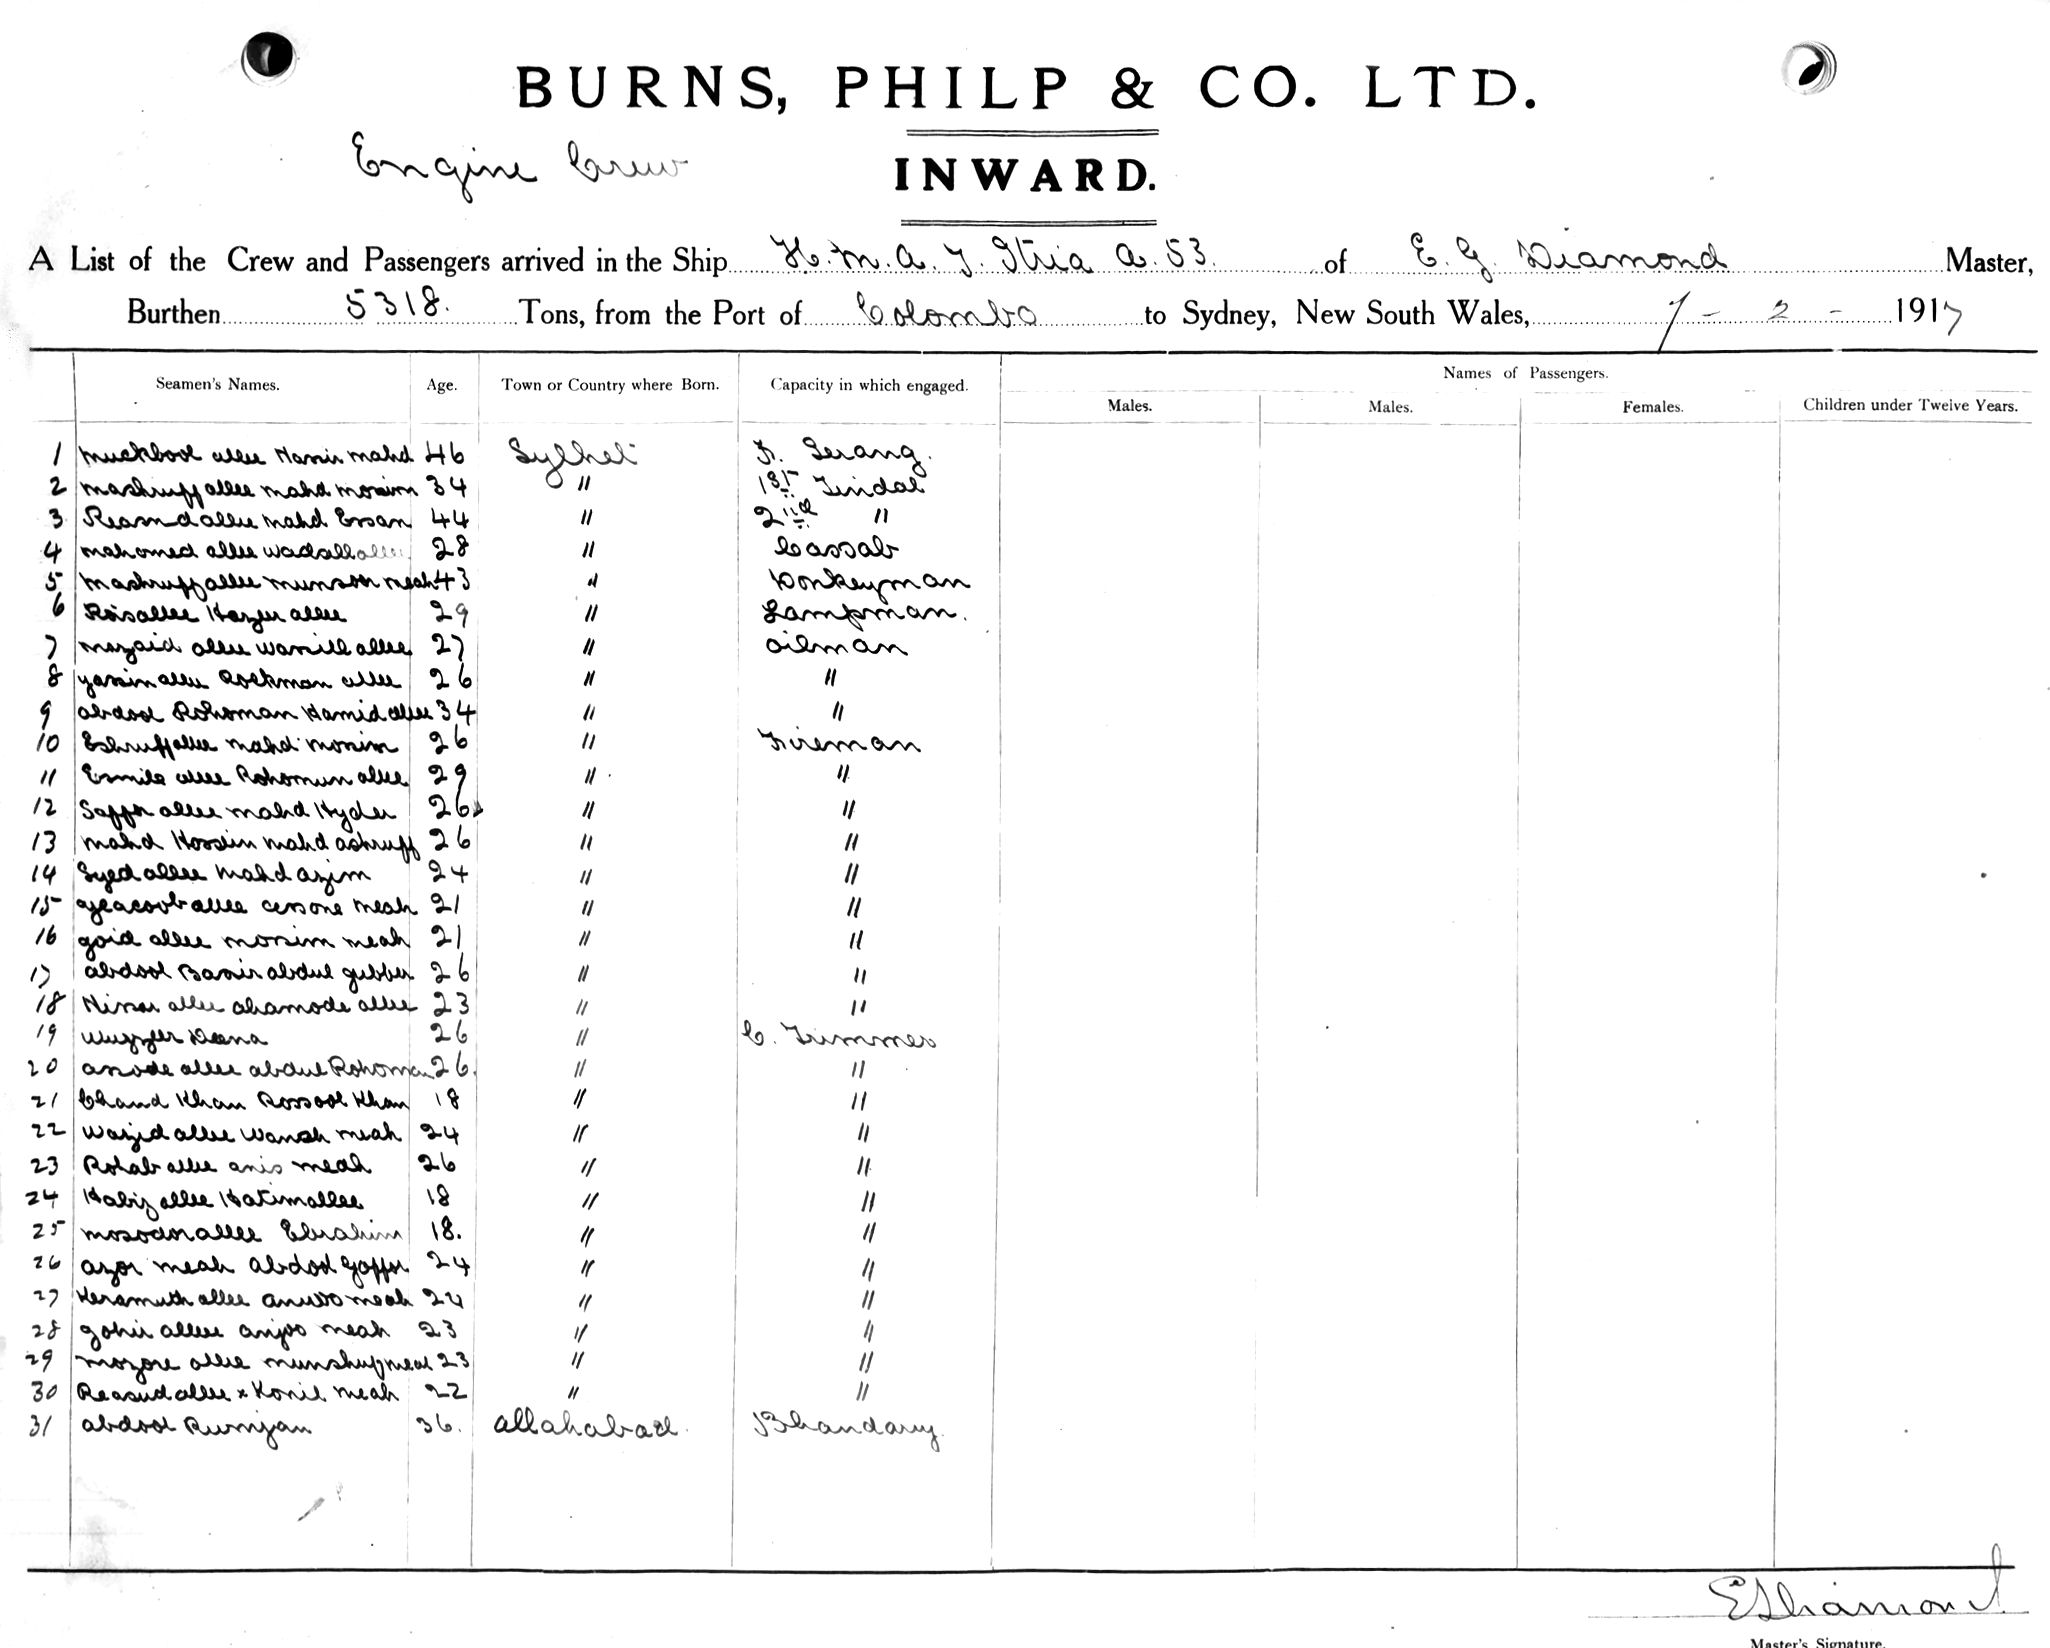 BURNS, PHILP & CO. LTD.
Engine Crew
INWARD.
A List of the Crew and Passengers arrived in the Ship H.M.A.T. Itria A.53. of E. G. Diamond Master,
Burthen 5318. Tons, from the Port of Colombo to Sydney, New South Wales, 7 - 2 - 1917
Names of Passengers.
Seamen's Names. Age. Town or Country where Born. Capacity in which engaged.
Males. Males. Females. Children under Twelve Years.
1 muckbool allee Nasir mahd 46 Sylhet F. Serang.
2 mashruff allee mahd mosim 34 " 1st Tindal
3 allee mahd Essan 44 " 2nd "
4 mahomed allee wadall allee 28 " Cassab
5 mashruff allee meah 43 " Donkeyman
6 Roisallee allee 29 " Lampman.
7 mozaid allee wasill allee 27 " oilman
8 yassin allee Rockman allee 26 " "
9 abdool Rohoman Hamid allee 34 " "
10 Eshruff allee mahd mosim 26 " Fireman
11 Esmile allee Rohomun allee 29 " "
12 Saffor allee mahd Hyder 26 " "
13 mahd Hossein mahd ashruff 26 " "
14 Syed allee mahd azim 24 " "
15 allee meah 21 " "
16 goid allee mosim meah 21 " "
17 abdool Basir abdul gubber 26 " "
18 allee ahamode allee 23 " "
19 26 " C. Trimmer
20 allee abdul Rohoman 26. " "
21 Chand Khan Rossool Khan 18 " "
22 Wazid allee meah 24 " "
23 Rohab allee anis meah 26 " "
24 Habiz allee Hatimallee 18 " "
25 allee Ebrahim 18. " "
26 azor meah abdool gaffor 24 " "
27 Keramuth allee meah 24 " "
28 gohir allee anjoo meah 23 " "
29 mozore allee 23 " "
30 Reasud allee x Konil meah 22 " "
31 abdool Rumjan 36. allahabad. Bhandary
E G Diamond.
Master's Signature.